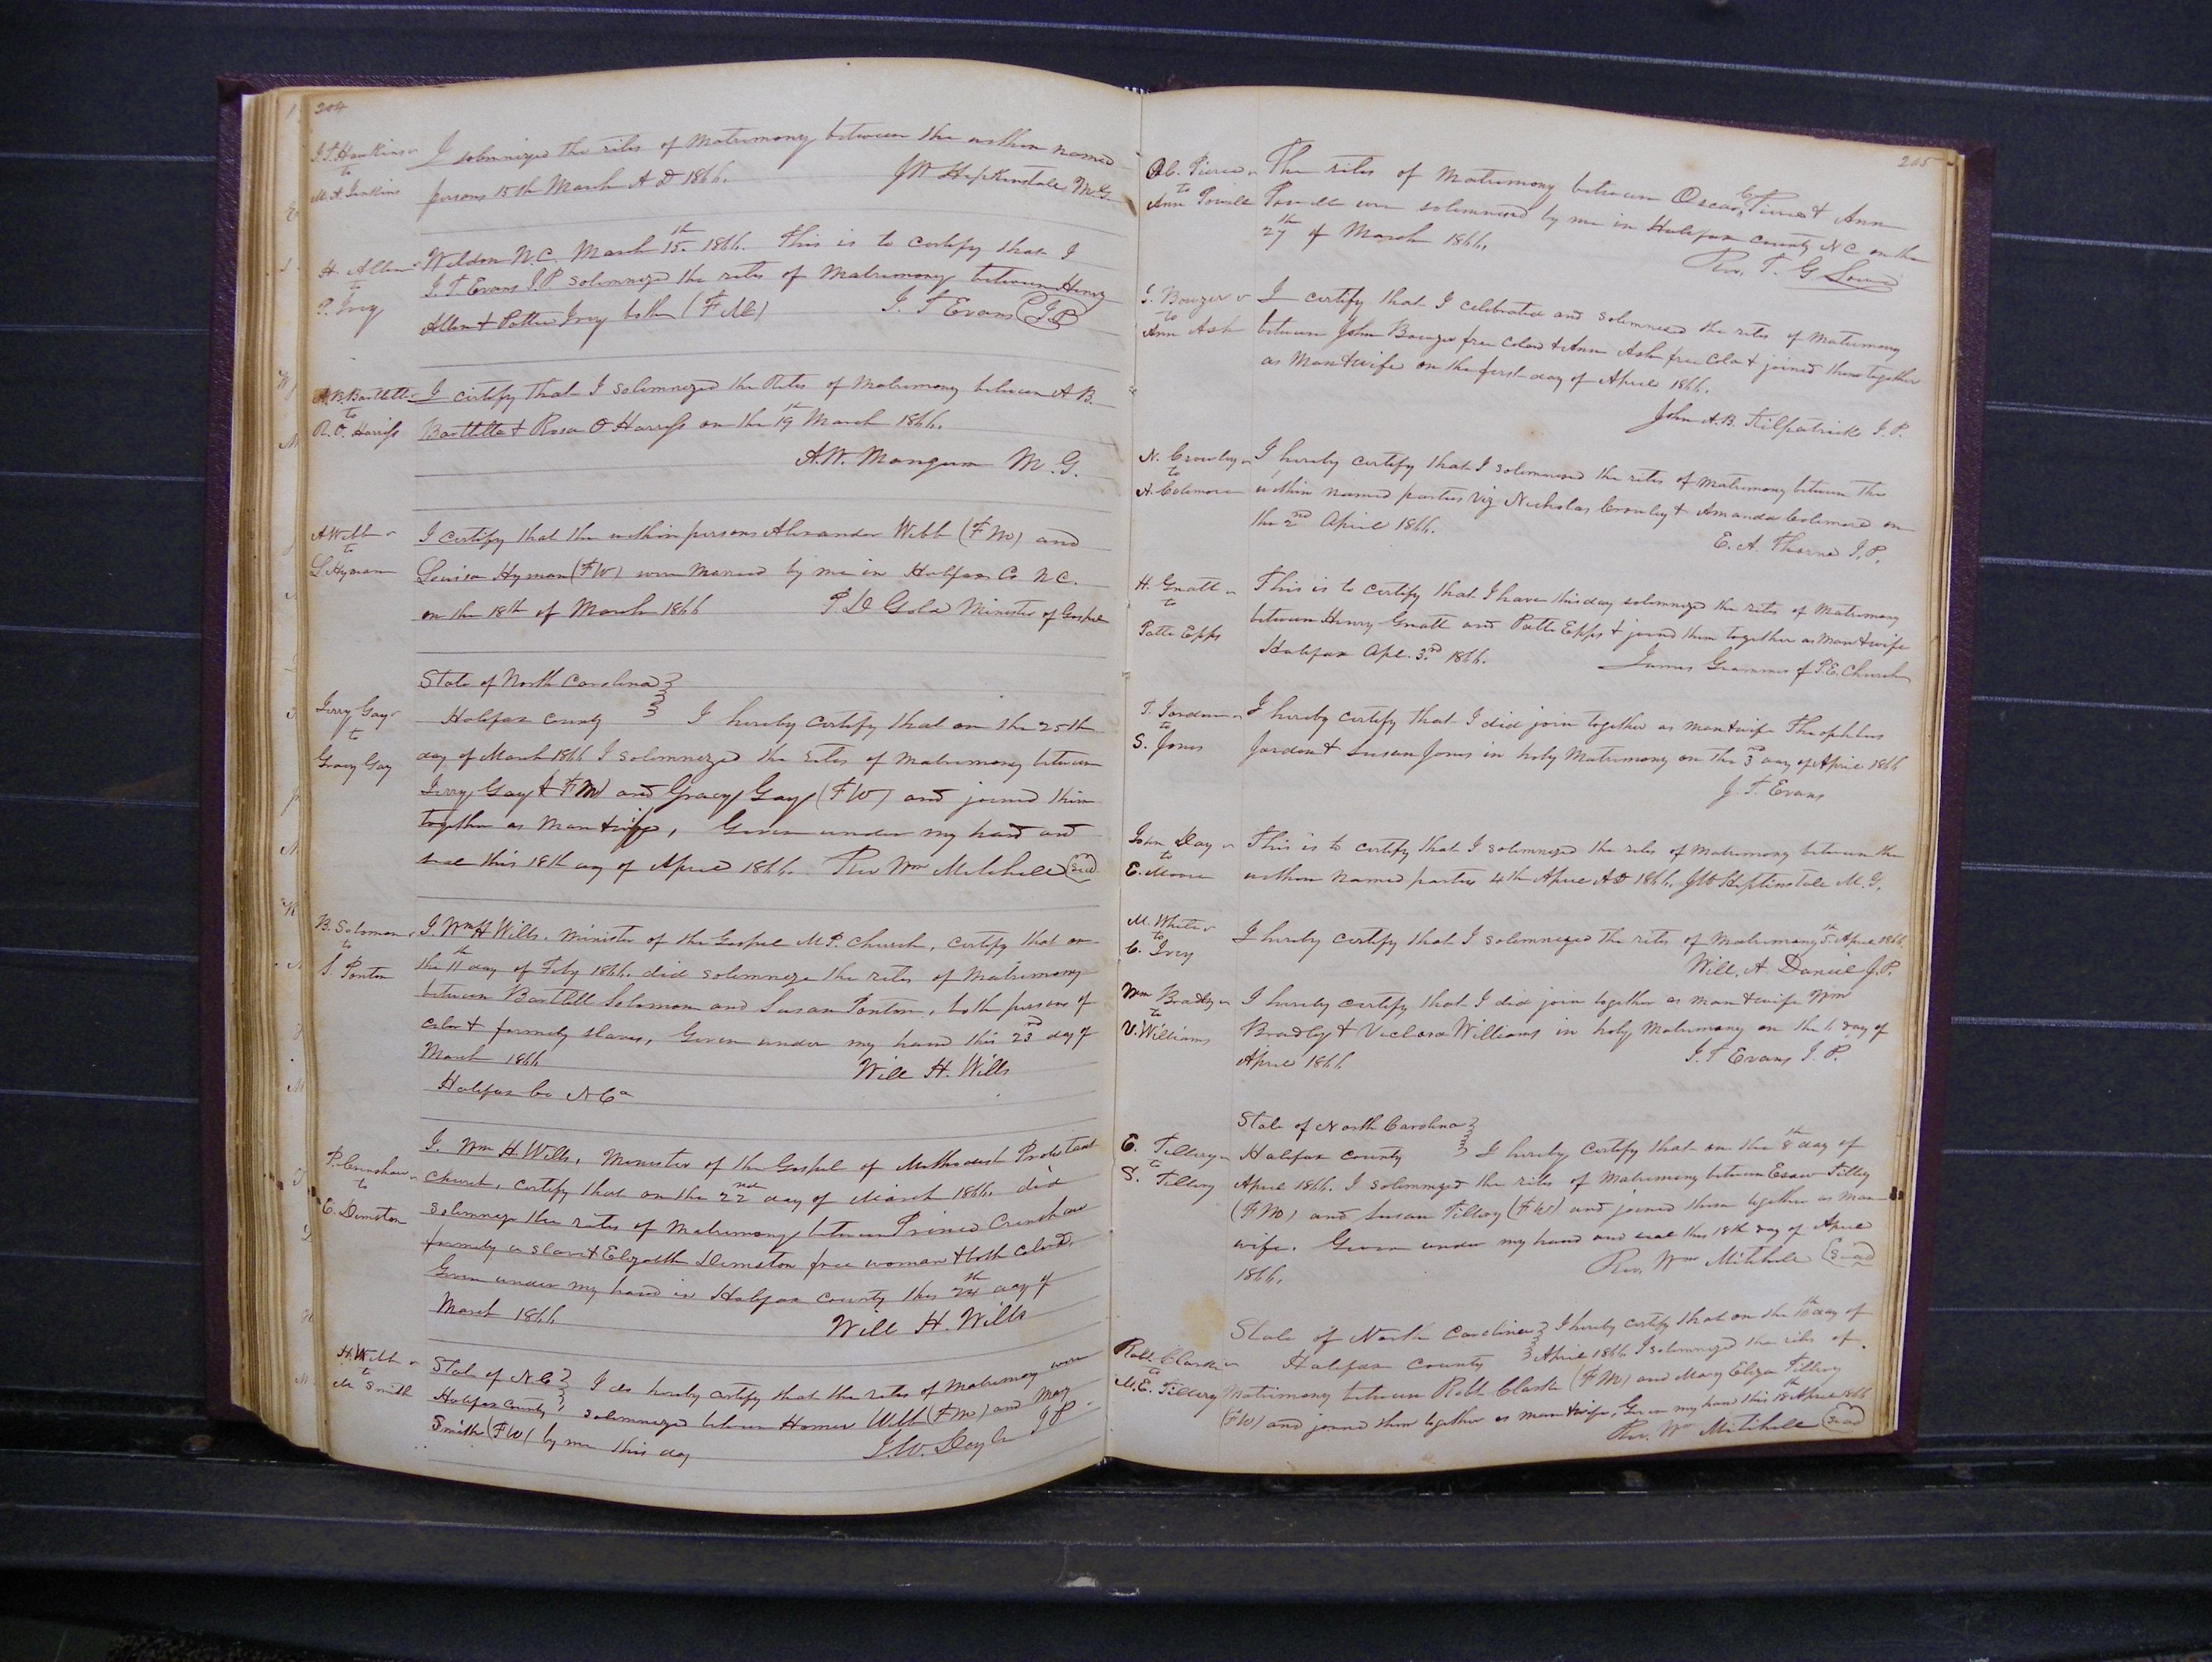 204
J. T. Hawkins
to
M. A. Jenkins
I solemnized the rites of Matrimony between the within named
persons 15th March A D 1866. JW Heptinstale M.G.
H. Allen
to
P. Ivey
Weldon N.C. March 15th 1866. This is to certify that I
J. T. Evans J.P. solemnized the rites of Matrimony between Henry
Allen & Pattie Ivey both J. T Evans J.P
A. B. Bartlette
to
R. O. Harriss
I certify that I solemnized the Rites of Matrimony between A B.
Bartlette & Rosa O Harriss on the 19th March 1866.
A. W. Mangum M. G.
A Webb
to
L Hyman
I certify that the within persons Alexander Webb (F M) and
Louisa Hyman (F W) were married by me in Halifax Co N.C.
on the 18th of March 1866 P D Gold Minister of Gospel
State of North Carolina
Jerry Gay
to
Gracy Gay
Halifax County I hereby certify that on the 25th
day of March 1866 I solemnized the rites of matrimony between
Jerry Gay F M and Gracy Gay (F W) and joined them
together as Man & wife, Given under my hand and
seal this 18th day of April 1866. Rev Wm Mitchell (seal)
B. Solomon
to
S. Ponton
I. Wm H Wills. Minister of the Gospel M P. Church, certify that on
the 11th day of Feby 1866. did solemnize the rites of Matrimony
between Bartlett Solomon and Susan Ponton, both persons of
color & formerly slaves, Given under my hand this 23rd day of
March 1866 Will H. Wills
Halifax Co N Ca
P. Crenshaw
to
E. Demston
I. Wm H. Wills, Minister of the Gospel of Methodist Protestant
Church, certify that on the 22nd day of March 1866. did
solemnize the rites of Matrimony between Prince Crenshaw
formerly a slave & Elizabeth Demston free woman & both Colord.
Given under my hand in Halifax County this 24th day of
March 1866 Will H. Wills
H. Webb
to
M Smith
State of N C I do hereby certify that the rites of Matrimony were
Halifax County solemnized between Homer Webb (F M) and Mary
Smith (F W) by me this day J. W. J P
205
O C. Pierce
to
Ann Powell
The rites of Matrimony between Oscar C Pierce & Ann
Powell were solemnized by me in Halifax County N C on the
27th of March 1866.
Rev. T. G Lowe
J. Bowzer
to
Ann Ash
I certify that I celebrated and solemnized the rites of Matrimony
between John Bowzer free Colord & Ann Ash free Col & joined them together
as Man & wife on the first day of April 1866.
John A. B. Kilpatrick J. P.
N. Crowley
to
A. Colemore
I hereby certify that I solemnized the rites of Matrimony between the
within named parties viz Nicholas Crowley & Amanda Colemore on
the 2nd April 1866.
E. A. Thorne J. P.
H. Gnatt
to
Patte Epps
This is to certify that I have this day solemnized the rites of Matrimony
between Henry Gnatt and Patte Epps & joined them together as Man & wife
Halifax Apl. 3rd 1866. James Grammer of P. E. Church
T. Jordan
to
S. Jones
I hereby certify that I did join together as man & wife Theophilus
Jordan & Susan Jones in holy Matrimony on the 3rd day of April 1866
J. T. Evans
John Day
to
E. Moore
This is to certify that I solemnized the rites of Matrimony between the
within named parties 4th April A D 1866. JW Heptinstale M. G.
M. White
to
C. Ivey
I hereby certify that I solemnized the rites of Matrimony 5th April 1866.
Will. A. Daniel J. P.
Wm Bradley
to
V. Williams
I hereby certify that I did join together as man & wife Wm
Bradley & Williams in holy Matrimony on the day of
April 1866 J. T Evans J. P.
State of North Carolina
E. Tillery
to
S. Tillery
Halifax County I hereby certify that on the 8th day of
April 1866. I solemnized the rites of Matrimony between Esaw Tillery
(F M) and Susan Tillery (F W) and joined them together as man
wife. Given under my hand and seal this 18th day of April
1866. Rev. Wm Mitchell (seal)
Robt. Clark
to
M. E. Tillery
State of North Carolina I hereby certify that on the 10th day of
Halifax County April 1866 I solemnized the rites of
Matrimony between Robt Clark (F M) and Mary Eliza Tillery
(F W) and joined them together as man & wife, Given my hand this 18th April 1866
Rev. Wm Mitchell (seal)